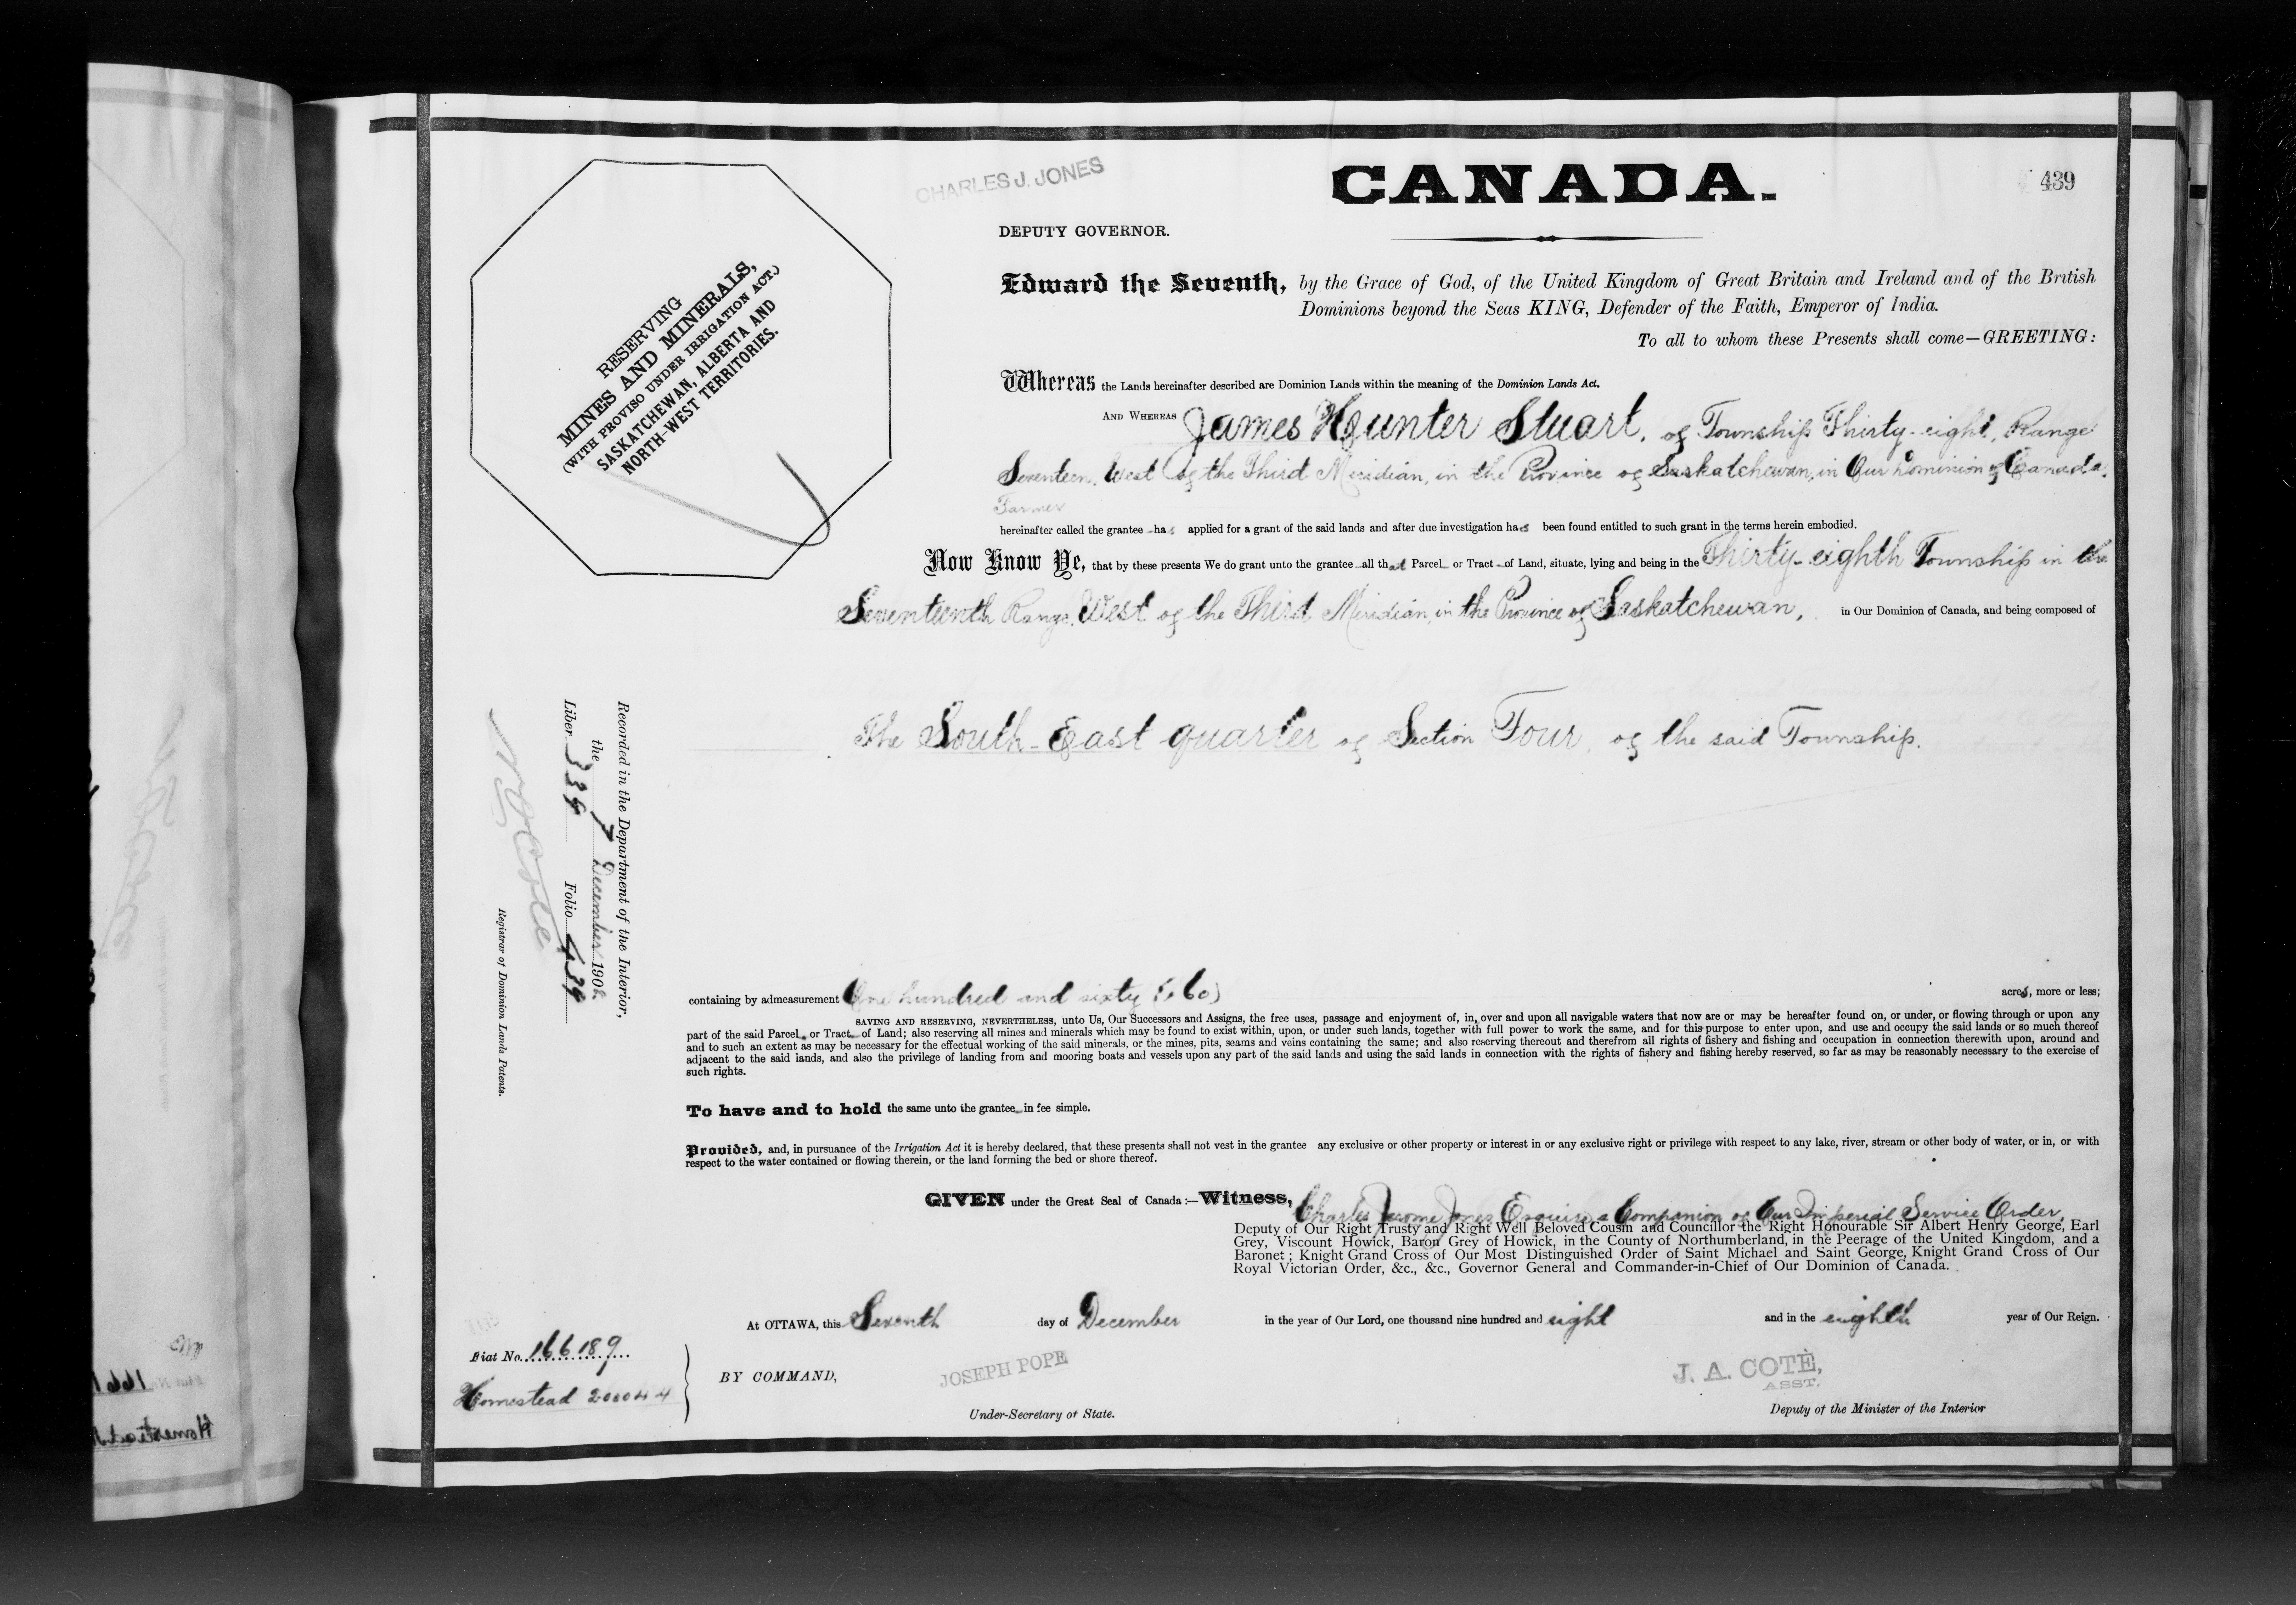 CHARLES J. JONES
CANADA.
439
DEPUTY GOVERNOR.
Edward the Seventh, by the Grace of God, of the United Kingdom of Great Britain and Ireland and of the British
Dominions beyond the Seas KING, Defender of the Faith, Emperor of India.
To all to whom these Presents shall come—GREETING:
RESERVING
MINES AND MINERALS,
(WITH PROVISO UNDER IRRIGATION ACT.)
SASKATCHEWAN, ALBERTA AND
NORTH-WEST TERRITORIES.
Whereas the Lands hereinafter described are Dominion Lands within the meaning of the Dominion Lands Act.
AND WHEREAS James Hunter Stuart, of Township Thirty-eight, Range
Seventeen, West of the Third Meridian, in the Province of Saskatchewan, in Our Dominion of Canada,
Farmer
hereinafter called the grantee has applied for a grant of the said lands and after due investigation has been found entitled to such grant in the terms herein embodied.
Now Know Ye, that by these presents We do grant unto the grantee all that Parcel or Tract of Land, situate, lying and being in the Thirty-eighth Township in the
Seventeenth Range, West of the Third Meridian, in the Province of Saskatchewan, in Our Dominion of Canada, and being composed of
The South-East quarter of Section Four, of the said Township.
Recorded in the Department of the Interior,
the 7 December 1908.
Liber 339 Folio 439
N. O. Coté
Registrar of Dominion Lands Patents.
containing by admeasurement One hundred and sixty (160) acres, more or less;
SAVING AND RESERVING, NEVERTHELESS, unto Us, Our Successors and Assigns, the free uses, passage and enjoyment of, in, over and upon all navigable waters that now are or may be hereafter found on, or under, or flowing through or upon any
part of the said Parcel or Tract of Land; also reserving all mines and minerals which may be found to exist within, upon, or under such lands, together with full power to work the same, and for this purpose to enter upon, and use and occupy the said lands or so much thereof
and to such an extent as may be necessary for the effectual working of the said minerals, or the mines, pits, seams and veins containing the same; and also reserving thereout and therefrom all rights of fishery and fishing and occupation in connection therewith upon, around and
adjacent to the said lands, and also the privilege of landing from and mooring boats and vessels upon any part of the said lands and using the said lands in connection with the rights of fishery and fishing hereby reserved, so far as may be reasonably necessary to the exercise of
such rights.
To have and to hold the same unto the grantee in fee simple.
Provided, and, in pursuance of the Irrigation Act it is hereby declared, that these presents shall not vest in the grantee any exclusive or other property or interest in or any exclusive right or privilege with respect to any lake, river, stream or other body of water, or in, or with
respect to the water contained or flowing therein, or the land forming the bed or shore thereof.
GIVEN under the Great Seal of Canada:—Witness, Charles Jerome Jones Esquire, a Companion of Our Imperial Service Order,
Deputy of Our Right Trusty and Right Well Beloved Cousin and Councillor the Right Honourable Sir Albert Henry George, Earl
Grey, Viscount Howick, Baron Grey of Howick, in the County of Northumberland, in the Peerage of the United Kingdom, and a
Baronet; Knight Grand Cross of Our Most Distinguished Order of Saint Michael and Saint George, Knight Grand Cross of Our
Royal Victorian Order, &c., &c., Governor General and Commander-in-Chief of Our Dominion of Canada.
At OTTAWA, this Seventh day of December in the year of Our Lord, one thousand nine hundred and eight and in the eighth year of Our Reign.
Fiat No. 166189
Homestead 200044
BY COMMAND,
JOSEPH POPE
Under-Secretary of State.
J. A. COTÈ,
ASST.
Deputy of the Minister of the Interior